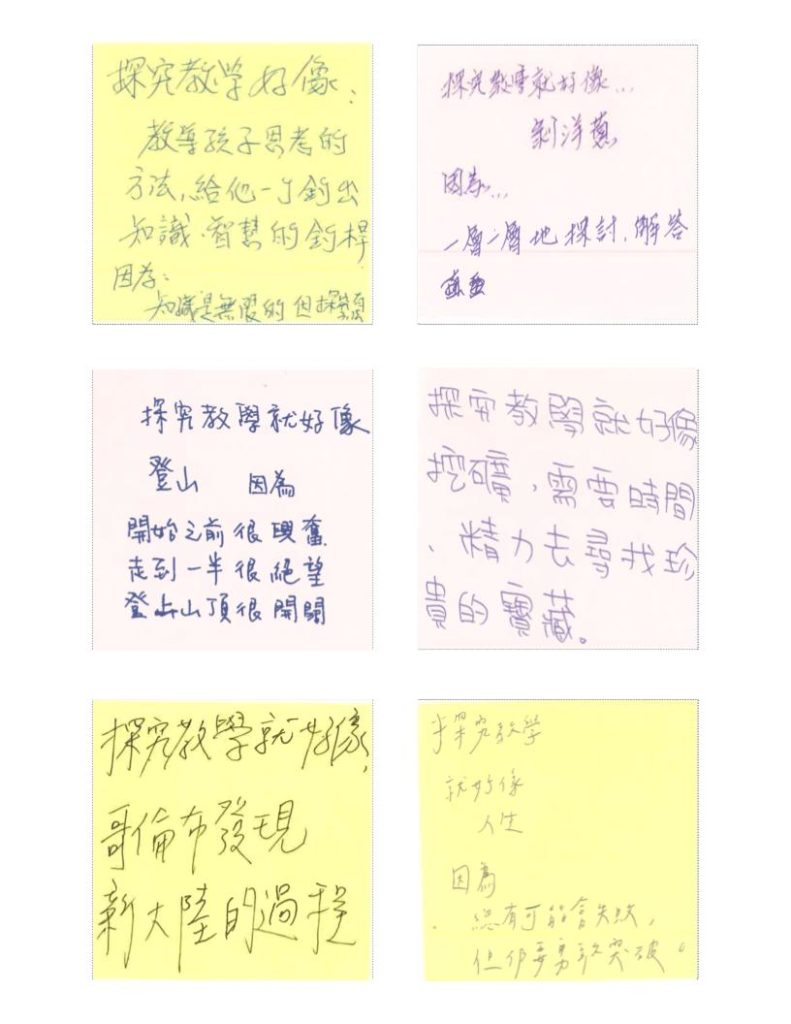 探究教学好像：
教導孩子思考的
方法，給他一个釣出
知識、智慧的釣桿
因為：
知識是無限的 但
探究教學就好像...
剝洋蔥
因為...
一層一層地探討，解答
探究教學就好像
登山 因為
開始之前很興奮
走到一半很絕望
登上山頂很開闊
探究教學就好像
挖礦，需要時間
、精力去尋找珍
貴的寶藏。
探究教學就好像，
哥倫布發現
新大陸的過程
探究教學
就好像
人生
因為
總有可能會失敗，
但仍要勇敢突破。